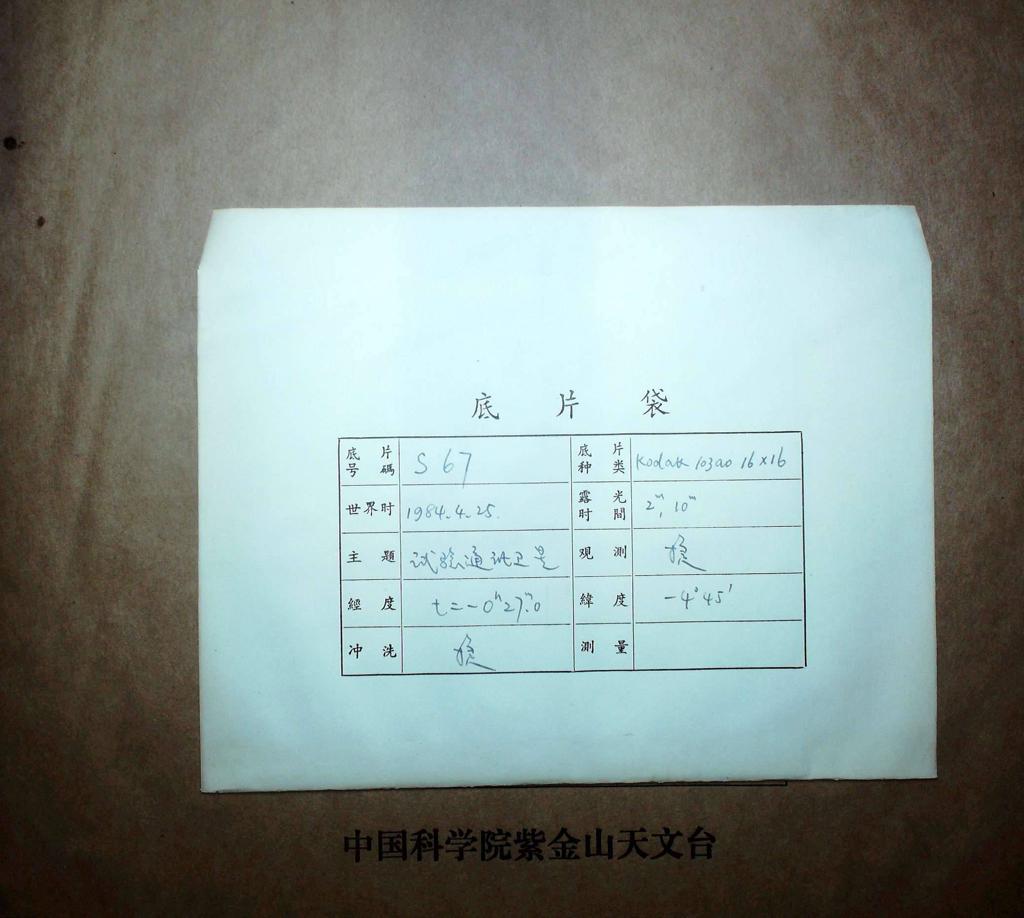 底 片 袋
底 片 号 碼 S 67 底 片 种 类 Kodak 103aO 16×16
世界时 1984.4.25. 露 光 时 間 2ᵐ, 10ᵐ
主 題 试验通讯卫星 观 测
經 度 t=-0ʰ27ᵐ.0 緯 度 -4°45′
冲 洗 測 量
中国科学院紫金山天文台